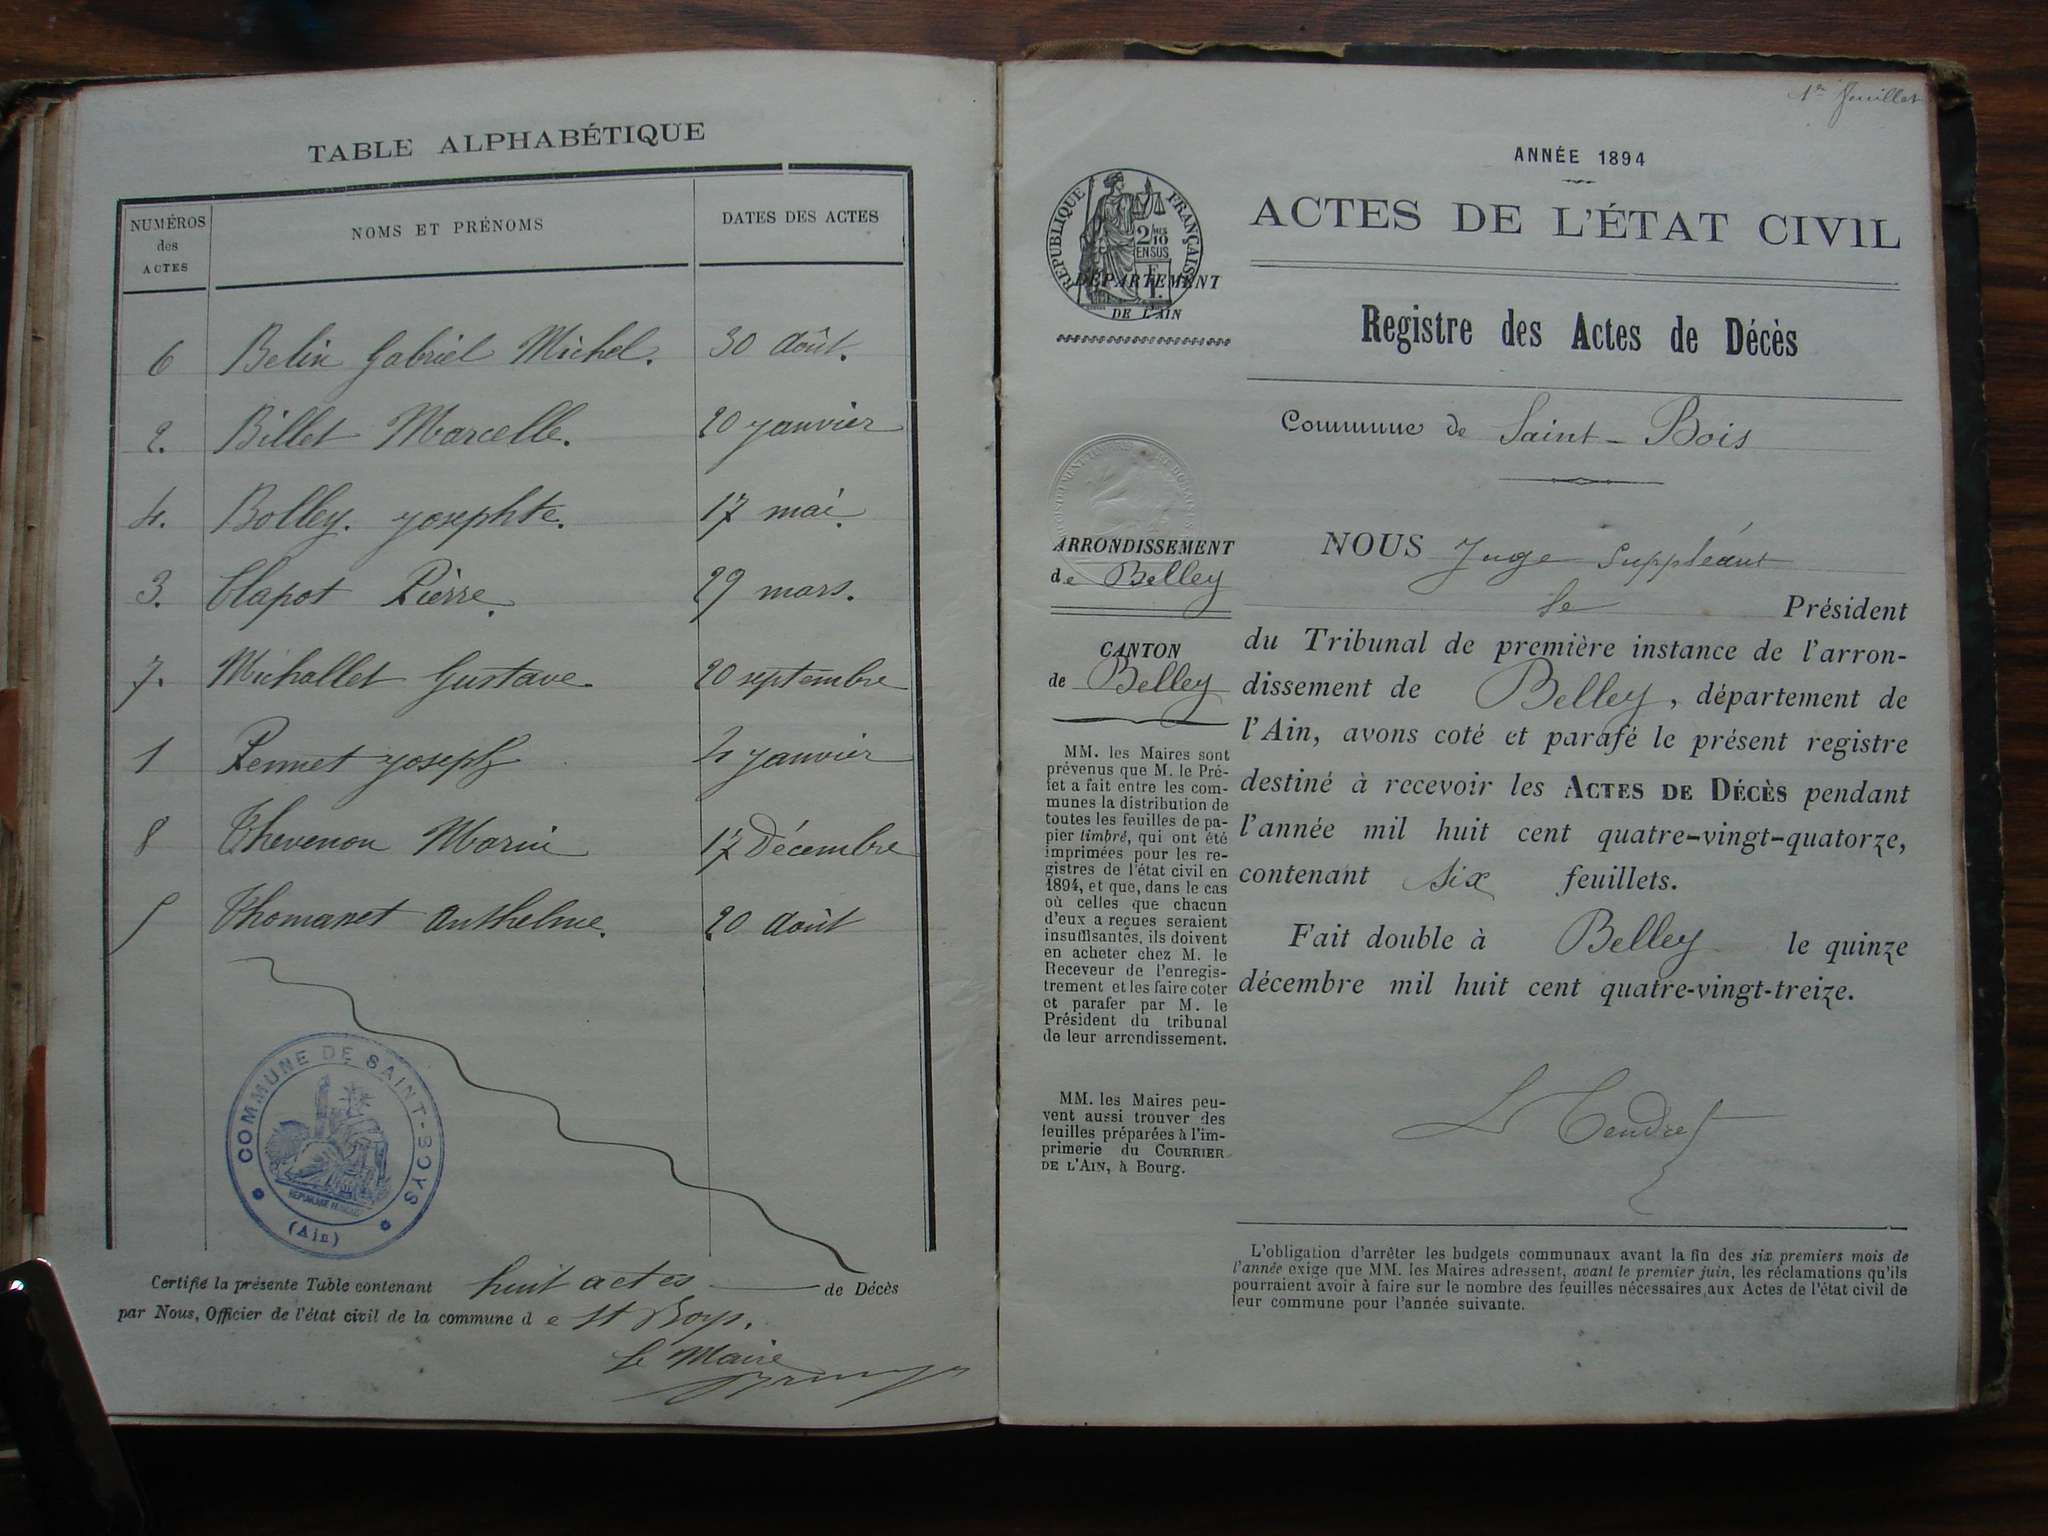 TABLE ALPHABÉTIQUE
NUMÉROS des ACTES NOMS ET PRÉNOMS DATES DES ACTES
6 Belin Gabriel Michel. 30 août.
2. Billet Marcelle. 20 janvier
4. Bolley. josephte. 17 mai.
3. Clapot Pierre. 29 mars.
7. Michallet Gustave. 20 septembre
1 Pennet joseph 4 janvier
8 Thevenon Marie 17 Décembre
5 Thomasset Anthelme. 20 août
COMMUNE DE SAINT-BOYS
RÉPUBLIQUE FRANÇAISE
(Ain)
Certifié la présente Table contenant huit actes de Décès
par Nous, Officier de l'état civil de la commune d e St Boys.
Le Maire
1er feuillet
ANNÉE 1894
ACTES DE L'ÉTAT CIVIL
RÉPUBLIQUE FRANÇAISE
2/10
EN SUS
DÉPARTEMENT
DE L'AIN
Registre des Actes de Décès
Commune de Saint-Bois
ARRONDISSEMENT
de Belley
CANTON
de Belley
MM. les Maires sont
prévenus que M. le Pré-
fet a fait entre les com-
munes la distribution de
toutes les feuilles de pa-
pier timbré, qui ont été
imprimées pour les re-
gistres de l'état civil en
1894, et que, dans le cas
où celles que chacun
d'eux a reçues seraient
insuffisantes, ils doivent
en acheter chez M. le
Receveur de l'enregis-
trement et les faire coter
et parafer par M. le
Président du tribunal
de leur arrondissement.
MM. les Maires peu-
vent aussi trouver des
feuilles préparées à l'im-
primerie du COURRIER
DE L'AIN, à Bourg.
NOUS Juge Suppléant
le Président
du Tribunal de première instance de l'arron-
dissement de Belley, département de
l'Ain, avons coté et parafé le présent registre
destiné à recevoir les ACTES DE DÉCÈS pendant
l'année mil huit cent quatre-vingt-quatorze,
contenant six feuillets.
Fait double à Belley le quinze
décembre mil huit cent quatre-vingt-treize.
L'obligation d'arrêter les budgets communaux avant la fin des six premiers mois de
l'année exige que MM. les Maires adressent, avant le premier juin, les réclamations qu'ils
pourraient avoir à faire sur le nombre des feuilles nécessaires aux Actes de l'état civil de
leur commune pour l'année suivante.